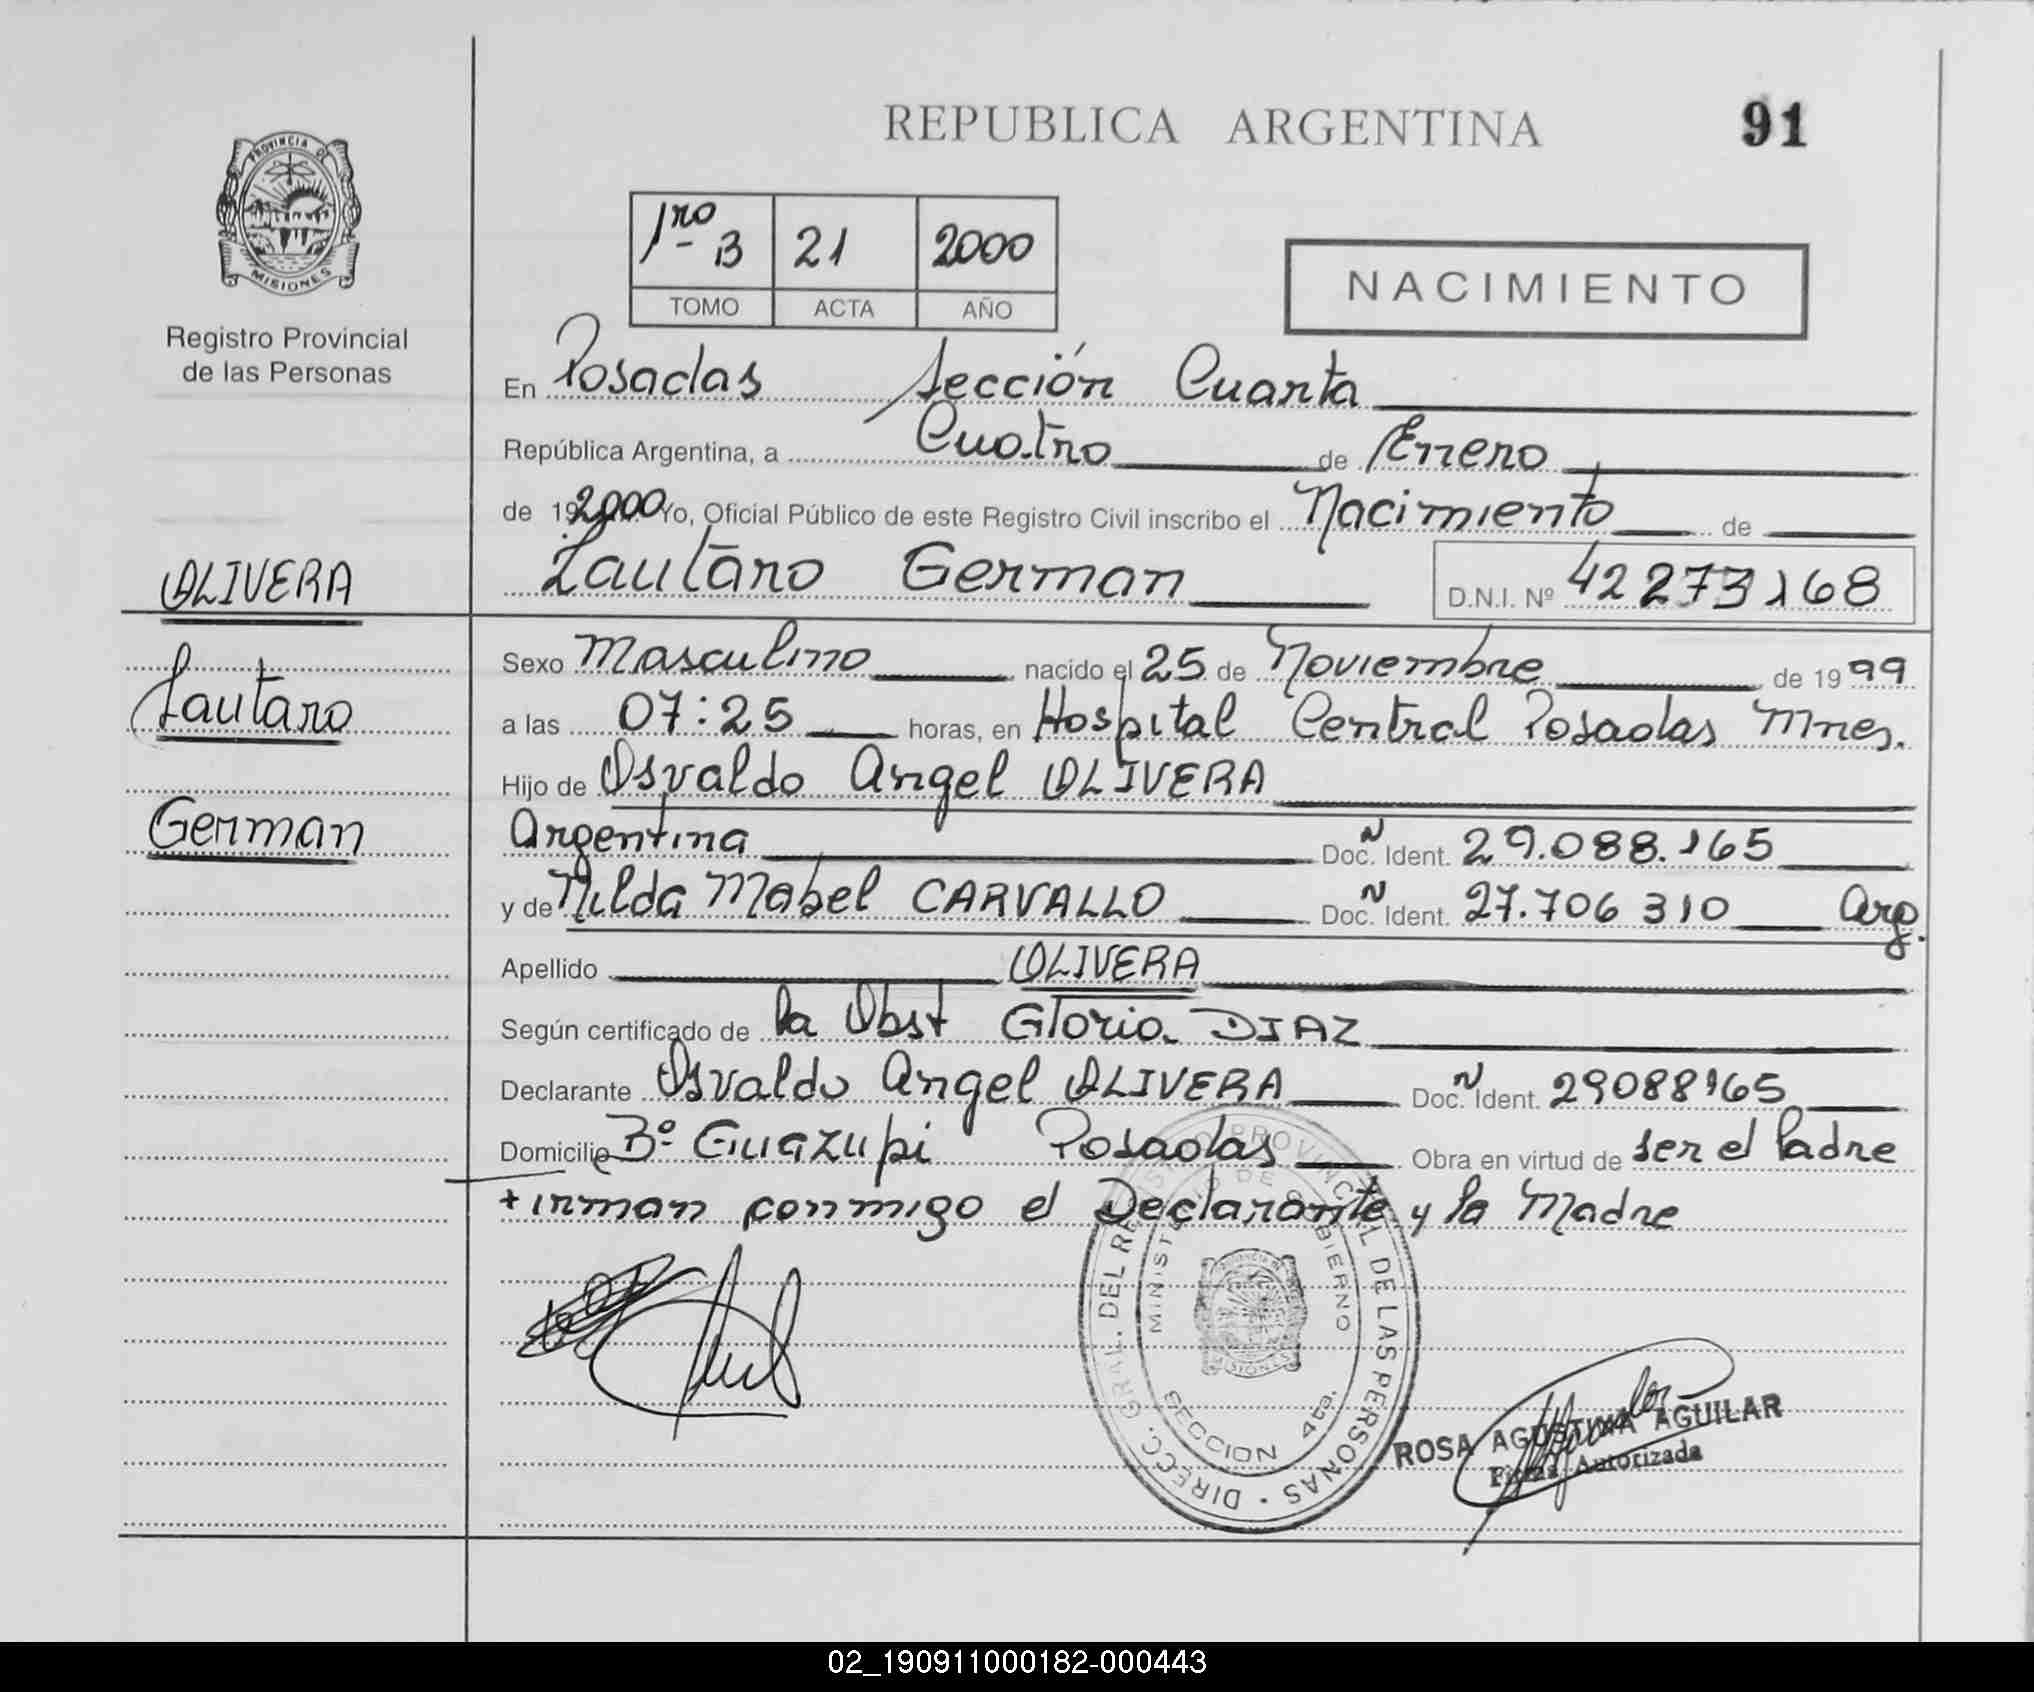 REPUBLICA ARGENTINA
91
PROVINCIA DE
MISIONES
Registro Provincial
de las Personas
1ro - B 21 2000
TOMO ACTA AÑO
NACIMIENTO
En Posadas Sección Cuarta
República Argentina, a Cuatro de Enero
de 192000 Yo, Oficial Público de este Registro Civil inscribo el Nacimiento de
OLIVERA
Lautaro German D.N.I. Nº 42273168
Lautaro
German
Sexo Masculino nacido el 25 de Noviembre de 1999
a las 07:25 horas, en Hospital Central Posadas Mnes.
Hijo de Osvaldo Angel OLIVERA
Argentina Doc. Ñ Ident. 29.088.165
y de Nilda Mabel CARVALLO Doc. Ñ Ident. 27.706 310 Arg.
Apellido OLIVERA
Según certificado de la Obst Gloria DIAZ
Declarante Osvaldo Angel OLIVERA Doc. Ñ Ident. 29088165
Domicilio Bº Guazupi Posadas Obra en virtud de ser el Padre
firman conmigo el Declarante y la Madre
DIRECC. GRAL. DEL REGISTRO PROVINCIAL DE LAS PERSONAS
MINISTERIO DE GOBIERNO
MISIONES
SECCION 4ta.
ROSA AGUSTINA AGUILAR
Firma Autorizada
02_190911000182-000443